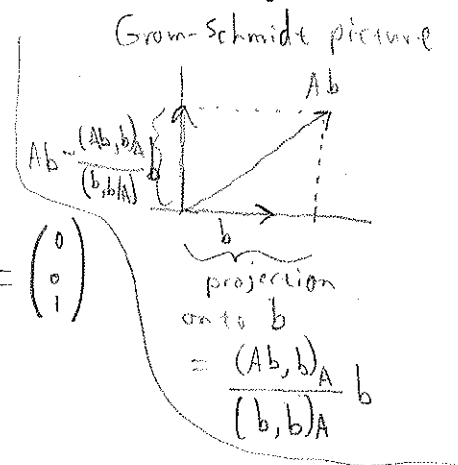 Gram-Schmidt picture
Ab
Ab - (Ab,b)_A / (b,b)_A b
b
= (0 0 1)
projection
onto b
= (Ab,b)_A / (b,b)_A b